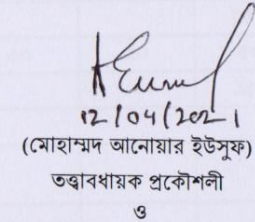 12/04/2021
(মোহাম্মদ আনোয়ার ইউসুফ)
তত্ত্বাবধায়ক প্রকৌশলী
ও